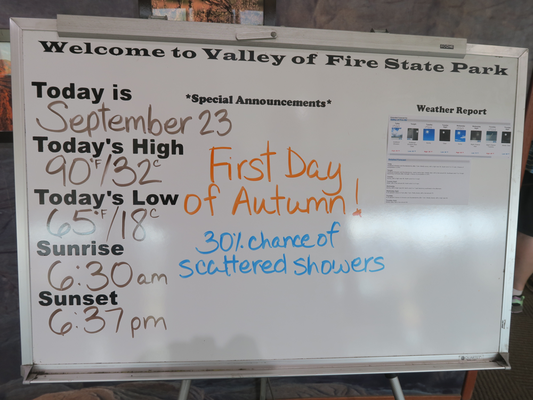 Welcome to Valley of Fire State Park
Today is
September 23
Today's High
90°F/32°C
Today's Low
65°F/18°C
Sunrise
6:30am
Sunset
6:37pm
*Special Announcements*
First Day
of Autumn!
30% chance of
scattered showers
Weather Report